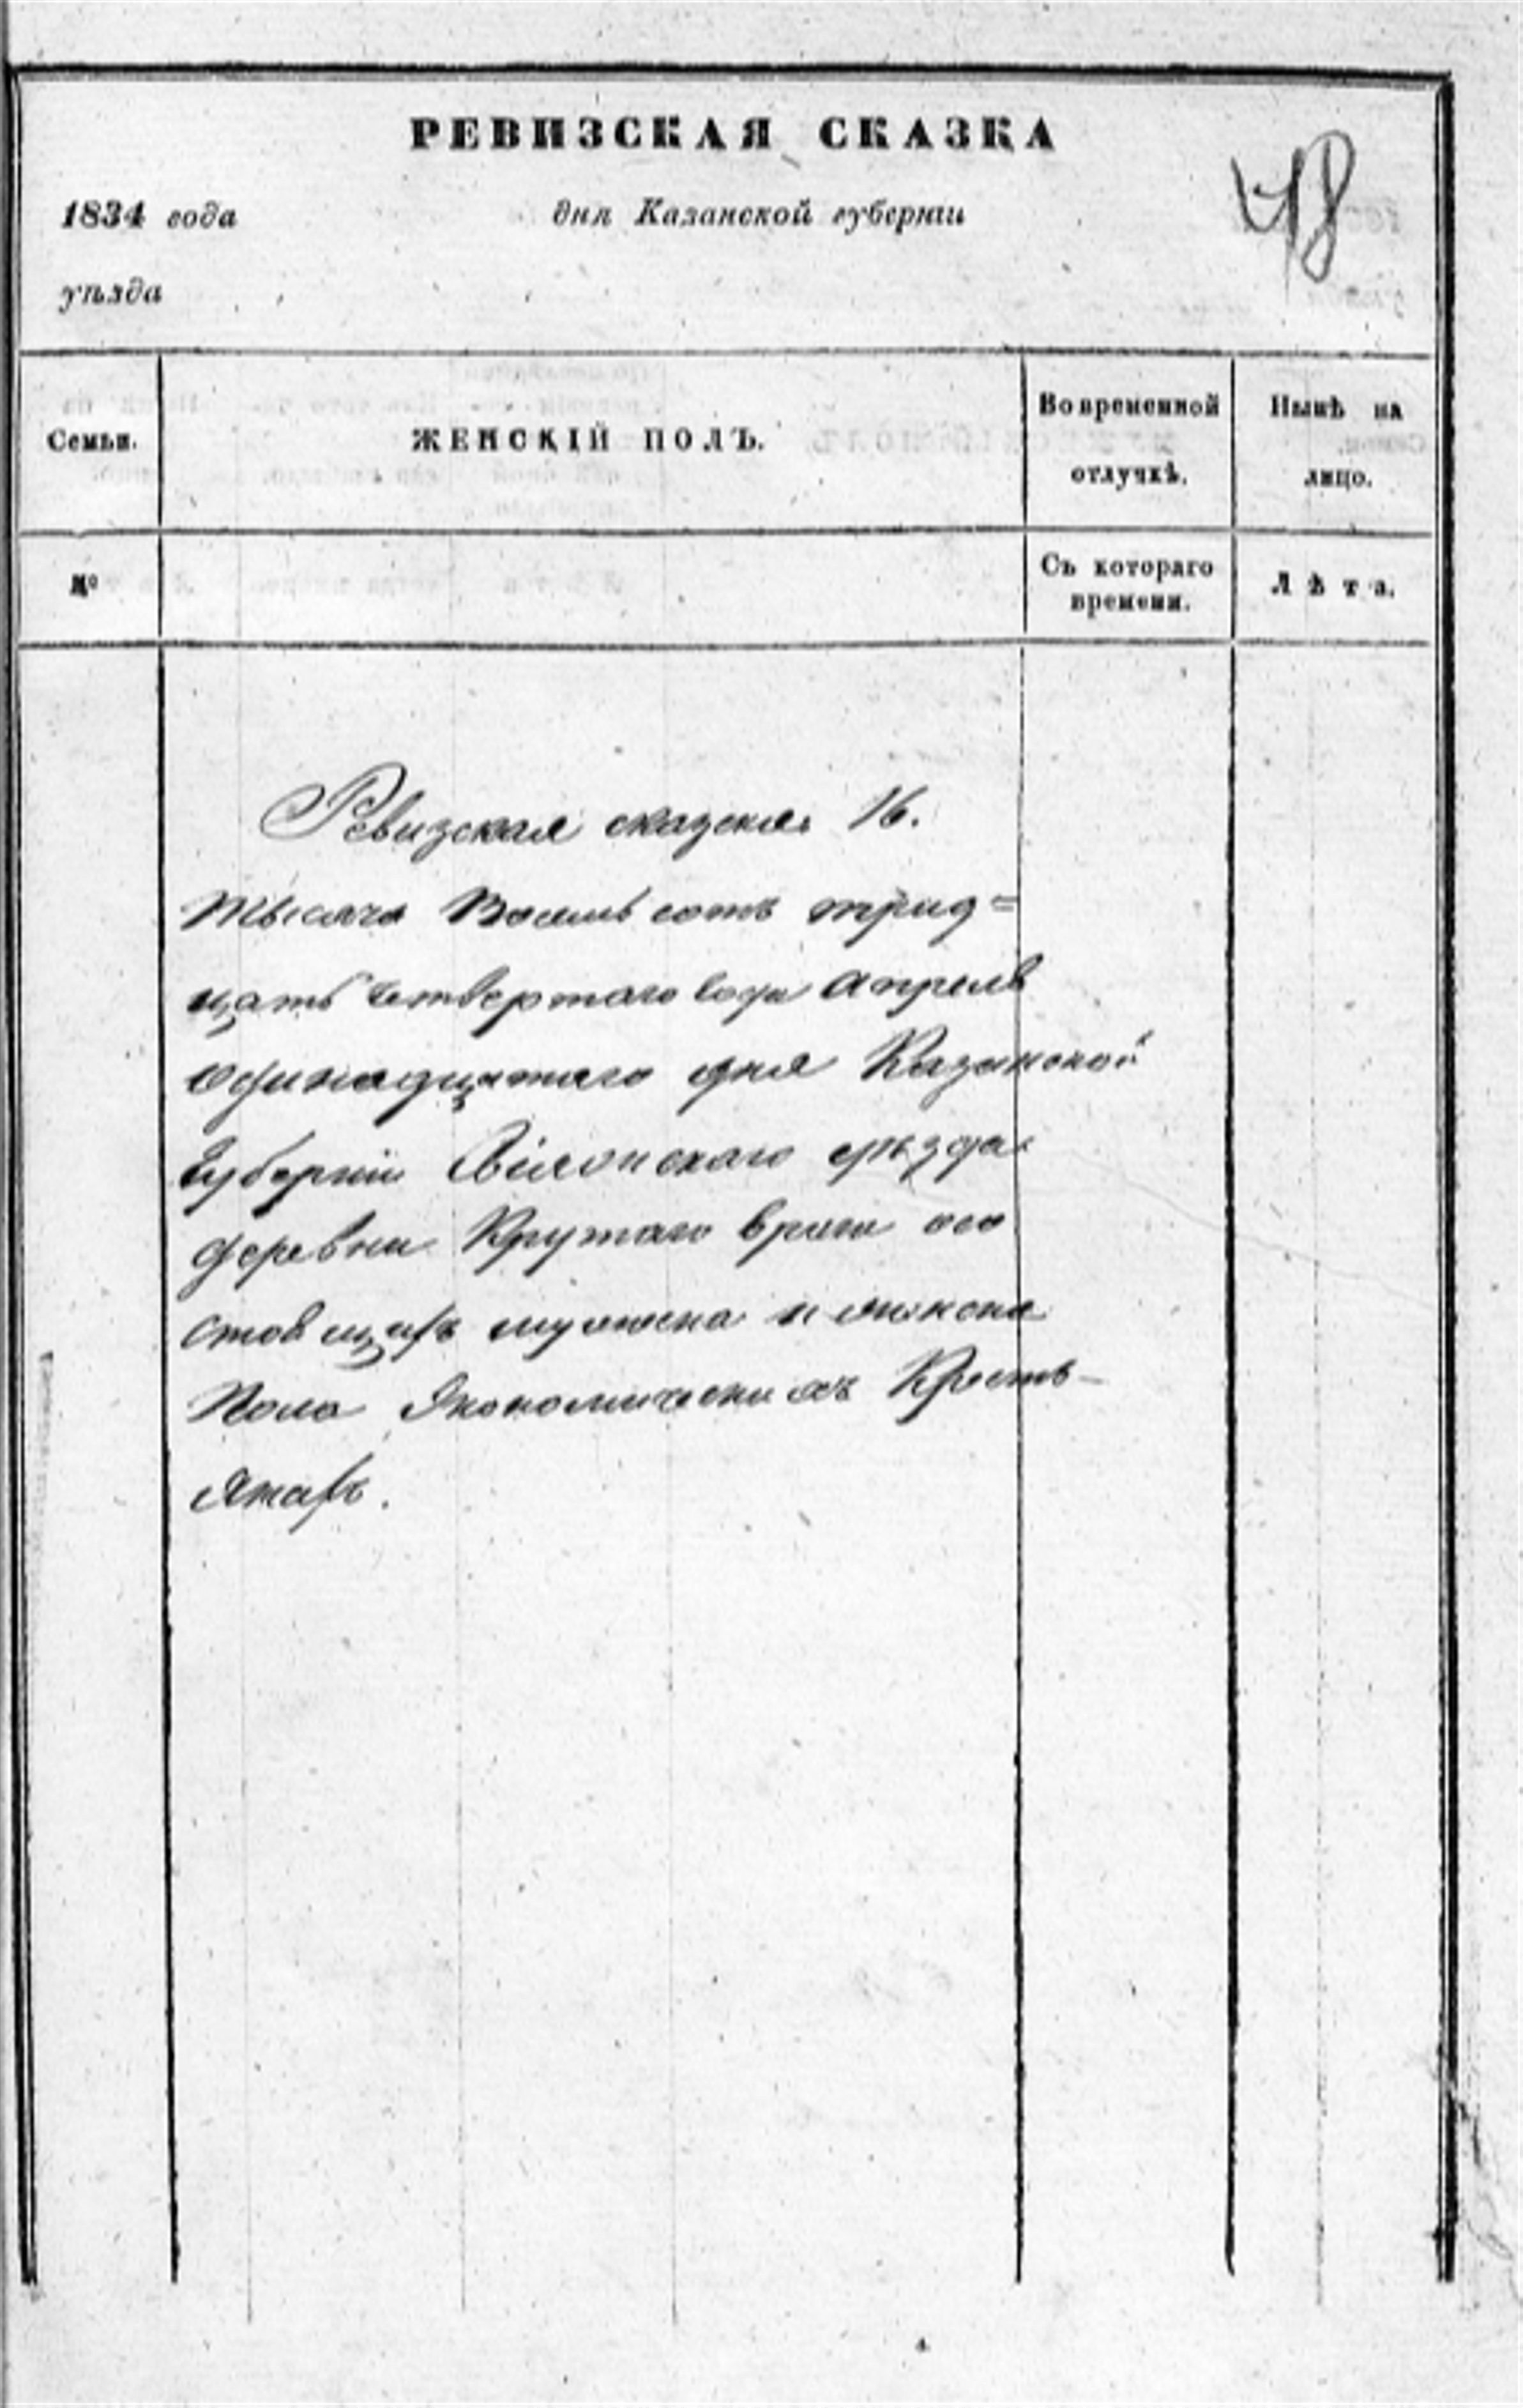 РЕВИЗСКАЯ СКАЗКА
48
1834 года дня Казанской губернiи
уѣзда
Семьи. ЖЕНСКIЙ ПОЛЪ. Во временной отлучкѣ. Нынѣ на лицо.
№ Съ котораго времени. Лѣта.
Ревизская сказка 16.
тысяча Восемь сотъ трид=
цать четвертаго года апреля
одинадцатаго дня Казанской
губернiи Свiяжскаго уѣзда
деревни Крутаго врага о со
стоящихъ мужеска и женска
Пола Экономическихъ Кресть-
янахъ.